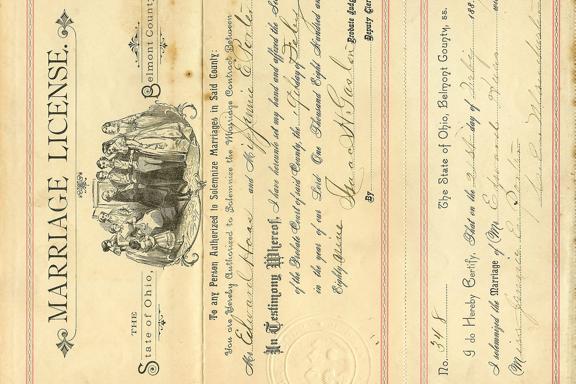 MARRIAGE LICENSE.
THE
State of Ohio, Belmont County
To any Person Authorized to Solemnize Marriages in Said County:
You are Hereby Authorized to Solemnize the Marriage Contract Between
Mr. Edward Haas and Miss Jennie E.
In Testimony Whereof, I have hereunto set my hand and affixed the
of the Probate Court of said County, the day of
in the year of our Lord One Thousand Eight Hundred and
Eighty nine Isaac H. Gaston
Probate Judge
By Deputy Clerk
No. 348 The State of Ohio, Belmont County, ss.
I do Hereby Certify, That on the 21st day of 188
I solemnized the Marriage of Mr. Edward Haas
Miss Jennie E.